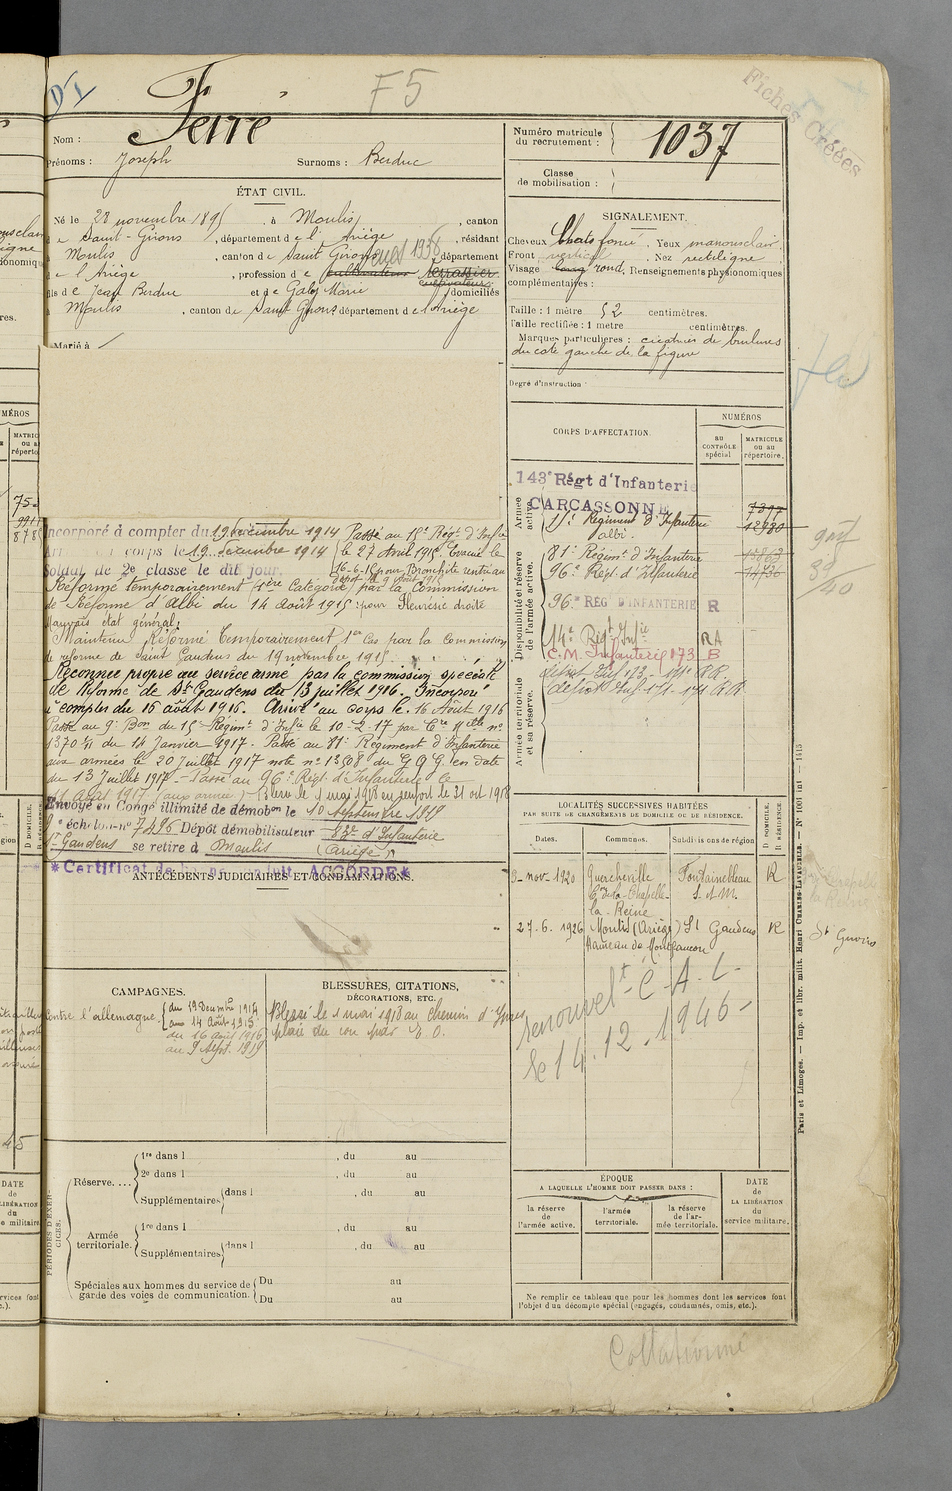 F5
Ferré
Nom :
Prénoms : Joseph Surnoms : Berduc
ÉTAT CIVIL.
Né le 28 novembre 1895, à Moulis, canton
de Saint-Girons, département de l'Ariège, résidant
Moulis, canton de Saint Girons, département
de l'Ariège, profession de cultivateur terrassier
cultivateur
fils de Jean Berduc et de Galey Marie domiciliés
à Moulis, canton de Saint Girons département de l'Ariège
Marié à
Incorporé à compter du 19 décembre 1914 Passé au 15e Régt d'Infie
corps le 19 décembre 1914 le 27 Avril 1915 Evacué le
Soldat de 2e classe le dit jour. 16-6-15 pour Bronchite rentré au
dépôt le 9 août 1915
Réformé temporairement 1ère Catégorie par la Commission
de Réforme d'Albi du 14 août 1915 pour Pleurésie droite
mauvais état général.
Maintenu Réformé temporairement 1er Cas par la Commission
de réforme de Saint Gaudens du 19 novembre 1915.
Reconnu propre au service armé par la commission spéciale
de Réforme de St Gaudens du 13 juillet 1916. Incorporé
à compter du 16 août 1916. Arrivé au corps le 16 Août 1916
Passé au 9e Bon du 15e Régimt d'Infie le 10-2-17 par Cre Mlle no
1370 du 14 Janvier 1917. Passé au 81e Régiment d'Infanterie
aux armées le 20 Juillet 1917 note no 1308 du G.Q.G. en date
du 13 Juillet 1917 - Passé au 96e Régt d'Infanterie le
11 Août 1917 (aux armées) Blessé le 1 mai 1918 en renfort le 31 oct 1918
Envoyé en Congé illimité de démobon le 10 Septembre 1919
échelon no 7496 Dépôt démobilisateur 83e d'Infanterie
St Gaudens se retire à Moulis (Ariège)
*Certificat de bonne conduite ACCORDÉ*
ANTÉCÉDENTS JUDICIAIRES ET CONDAMNATIONS.
CAMPAGNES.
Contre l'allemagne. du 19 Décembre 1914
au 14 Août 1915
du 16 août 1916
au 9 Sept. 1919
BLESSURES, CITATIONS,
DÉCORATIONS, ETC.
Blessé le 1 mai 1918 au Chemin d'Ypres
plaie du cou par E.O.
PÉRIODES D'EXERCICES.
Réserve.... 1re dans l , du au
2e dans l , du au
Supplémentaires dans l , du au
Armée territoriale. 1re dans l , du au
Supplémentaires dans l , du au
Spéciales aux hommes du service de garde des voies de communication. Du au
Du au
Numéro matricule du recrutement : 1037
Classe de mobilisation :
SIGNALEMENT.
Cheveux Chats foncé. Yeux marron clair.
Front vertical. Nez rectiligne
Visage long rond. Renseignements physionomiques
complémentaires :
Taille : 1 mètre 52 centimètres.
Taille rectifiée : 1 mètre centimètres.
Marques particulières : cicatrices de brulures
du coté gauche de la figure
Degré d'instruction
CORPS D'AFFECTATION.
NUMÉROS
au CONTRÔLE spécial
MATRICULE ou au répertoire.
Armée active.
143e Régt d'Infanterie
CARCASSONNE 7397
15e Régiment d'Infanterie 12980
albi.
Disponibilité et réserve de l'armée active.
81e Régimt d'Infanterie
96e Régt d'Infanterie 14730
96e REG D'INFANTERIE R
14e Régt Infie RA
C.M. Infanterie 173 B
Armée territoriale et sa réserve.
LOCALITÉS SUCCESSIVES HABITÉES
PAR SUITE DE CHANGEMENTS DE DOMICILE OU DE RÉSIDENCE.
Dates. Communes. Subdivisions de région D DOMICILE. R RÉSIDENCE
9-nov-1920 Guercheville Fontainebleau R
C. de la Chapelle- S. & M.
la-Reine
27.6.1926 Moulis (Ariège) St Gaudens R
Hameau de Montfaucon
St Girons
renouvelt C.A.L
le 14.12.1946
ÉPOQUE
A LAQUELLE L'HOMME DOIT PASSER DANS :
la réserve de l'armée active.
l'armée territoriale.
la réserve de l'armée territoriale.
DATE de LA LIBÉRATION du service militaire.
Ne remplir ce tableau que pour les hommes dont les services font
l'objet d'un décompte spécial (engagés, condamnés, omis, etc.).
Collationné
Fiches Créées
Paris et Limoges. — Imp. et libr. milit. Henri CHARLES-LAVAUZELLE.